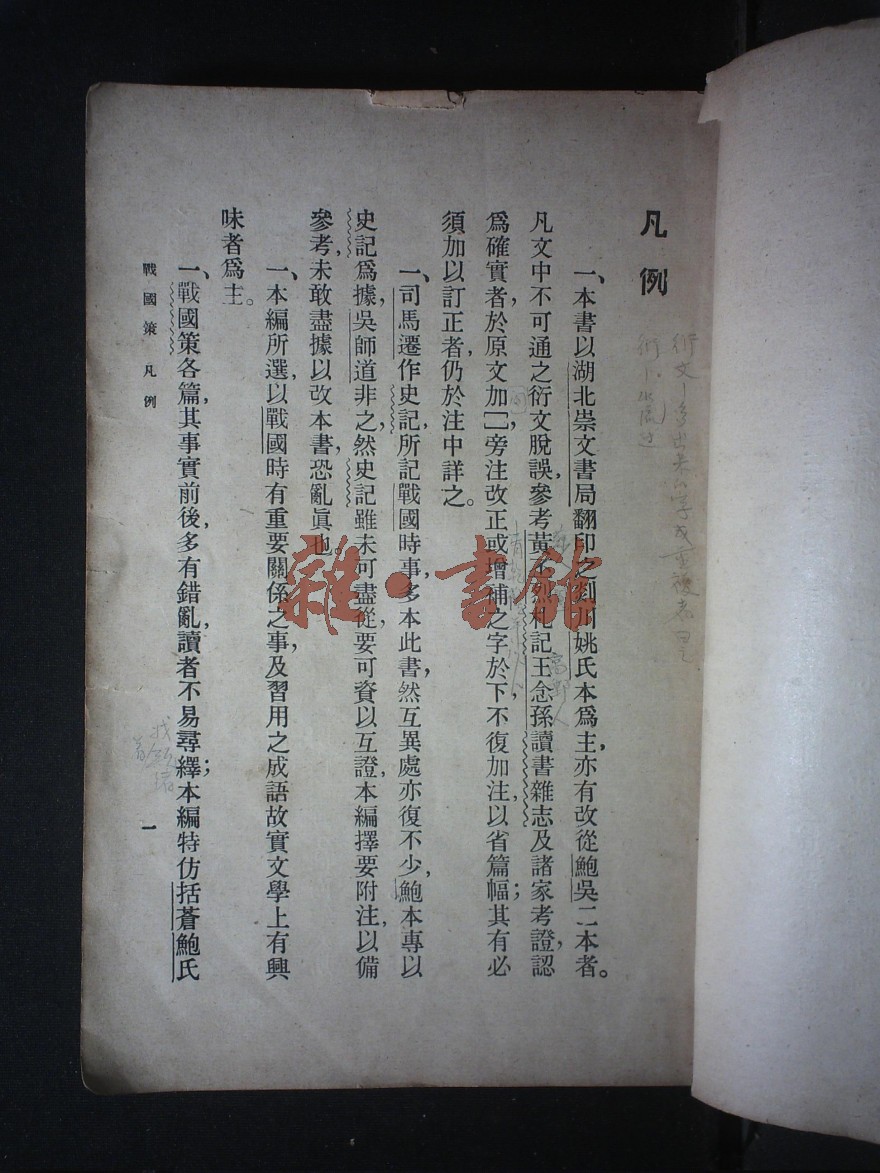 凡例
一、本書以湖北崇文書局翻印之剡川姚氏本爲主，亦有改從鮑吳二本者。
凡文中不可通之衍文脫誤，參考黃丕烈札記王念孫讀書雜志及諸家考證，認
爲確實者，於原文加〔〕旁注改正或增補之字於下，不復加注，以省篇幅；其有必
須加以訂正者，仍於注中詳之。
一、司馬遷作史記，所記戰國時事，多本此書，然互異處亦復不少，鮑本專以
史記爲據，吳師道非之，然史記雖未可盡從，要可資以互證，本編擇要附注，以備
參考，未敢盡據以改本書，恐亂眞也。
一、本編所選，以戰國時有重要關係之事，及習用之成語故實文學上有興
味者爲主。
一、戰國策各篇，其事實前後，多有錯亂，讀者不易尋繹；本編特仿括蒼鮑氏
戰國策 凡例
一
雜·書館